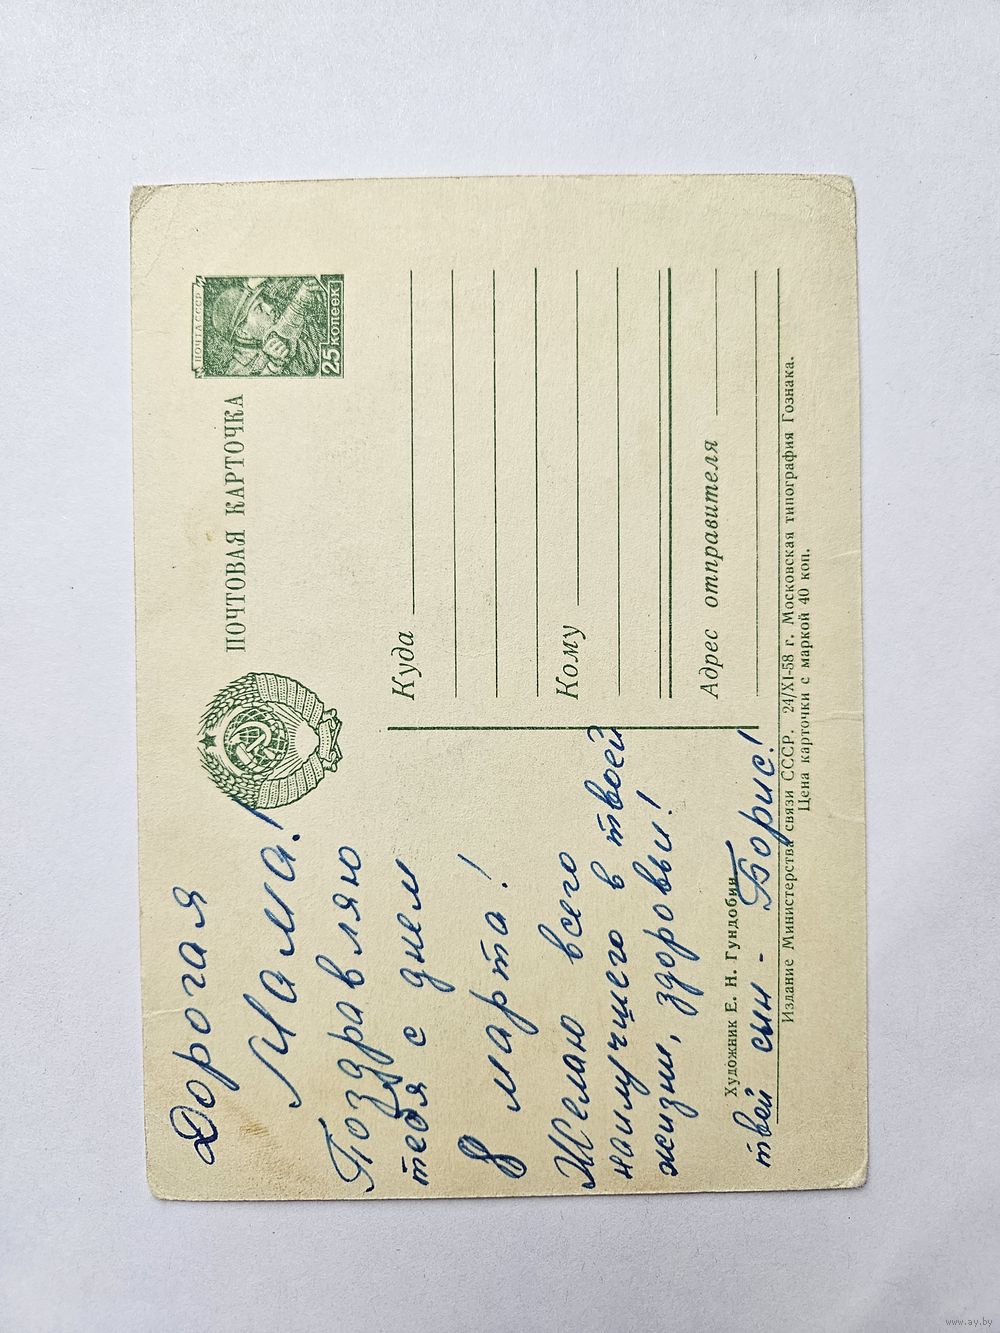 ПОЧТА СССР
25 копеек
ПОЧТОВАЯ КАРТОЧКА
Куда
Кому
Адрес отправителя
Дорогая
Мама!
Поздравляю
тебя с днем
8 марта!
Желаю всего
наилучшего в твоей
жизни, здоровьи!
Художник Е. Н. Гундобин
твой сын - Борис!
Издание Министерства связи СССР. 24/XI-58 г. Московская типография Гознака.
Цена карточки с маркой 40 коп.
www.ay.by